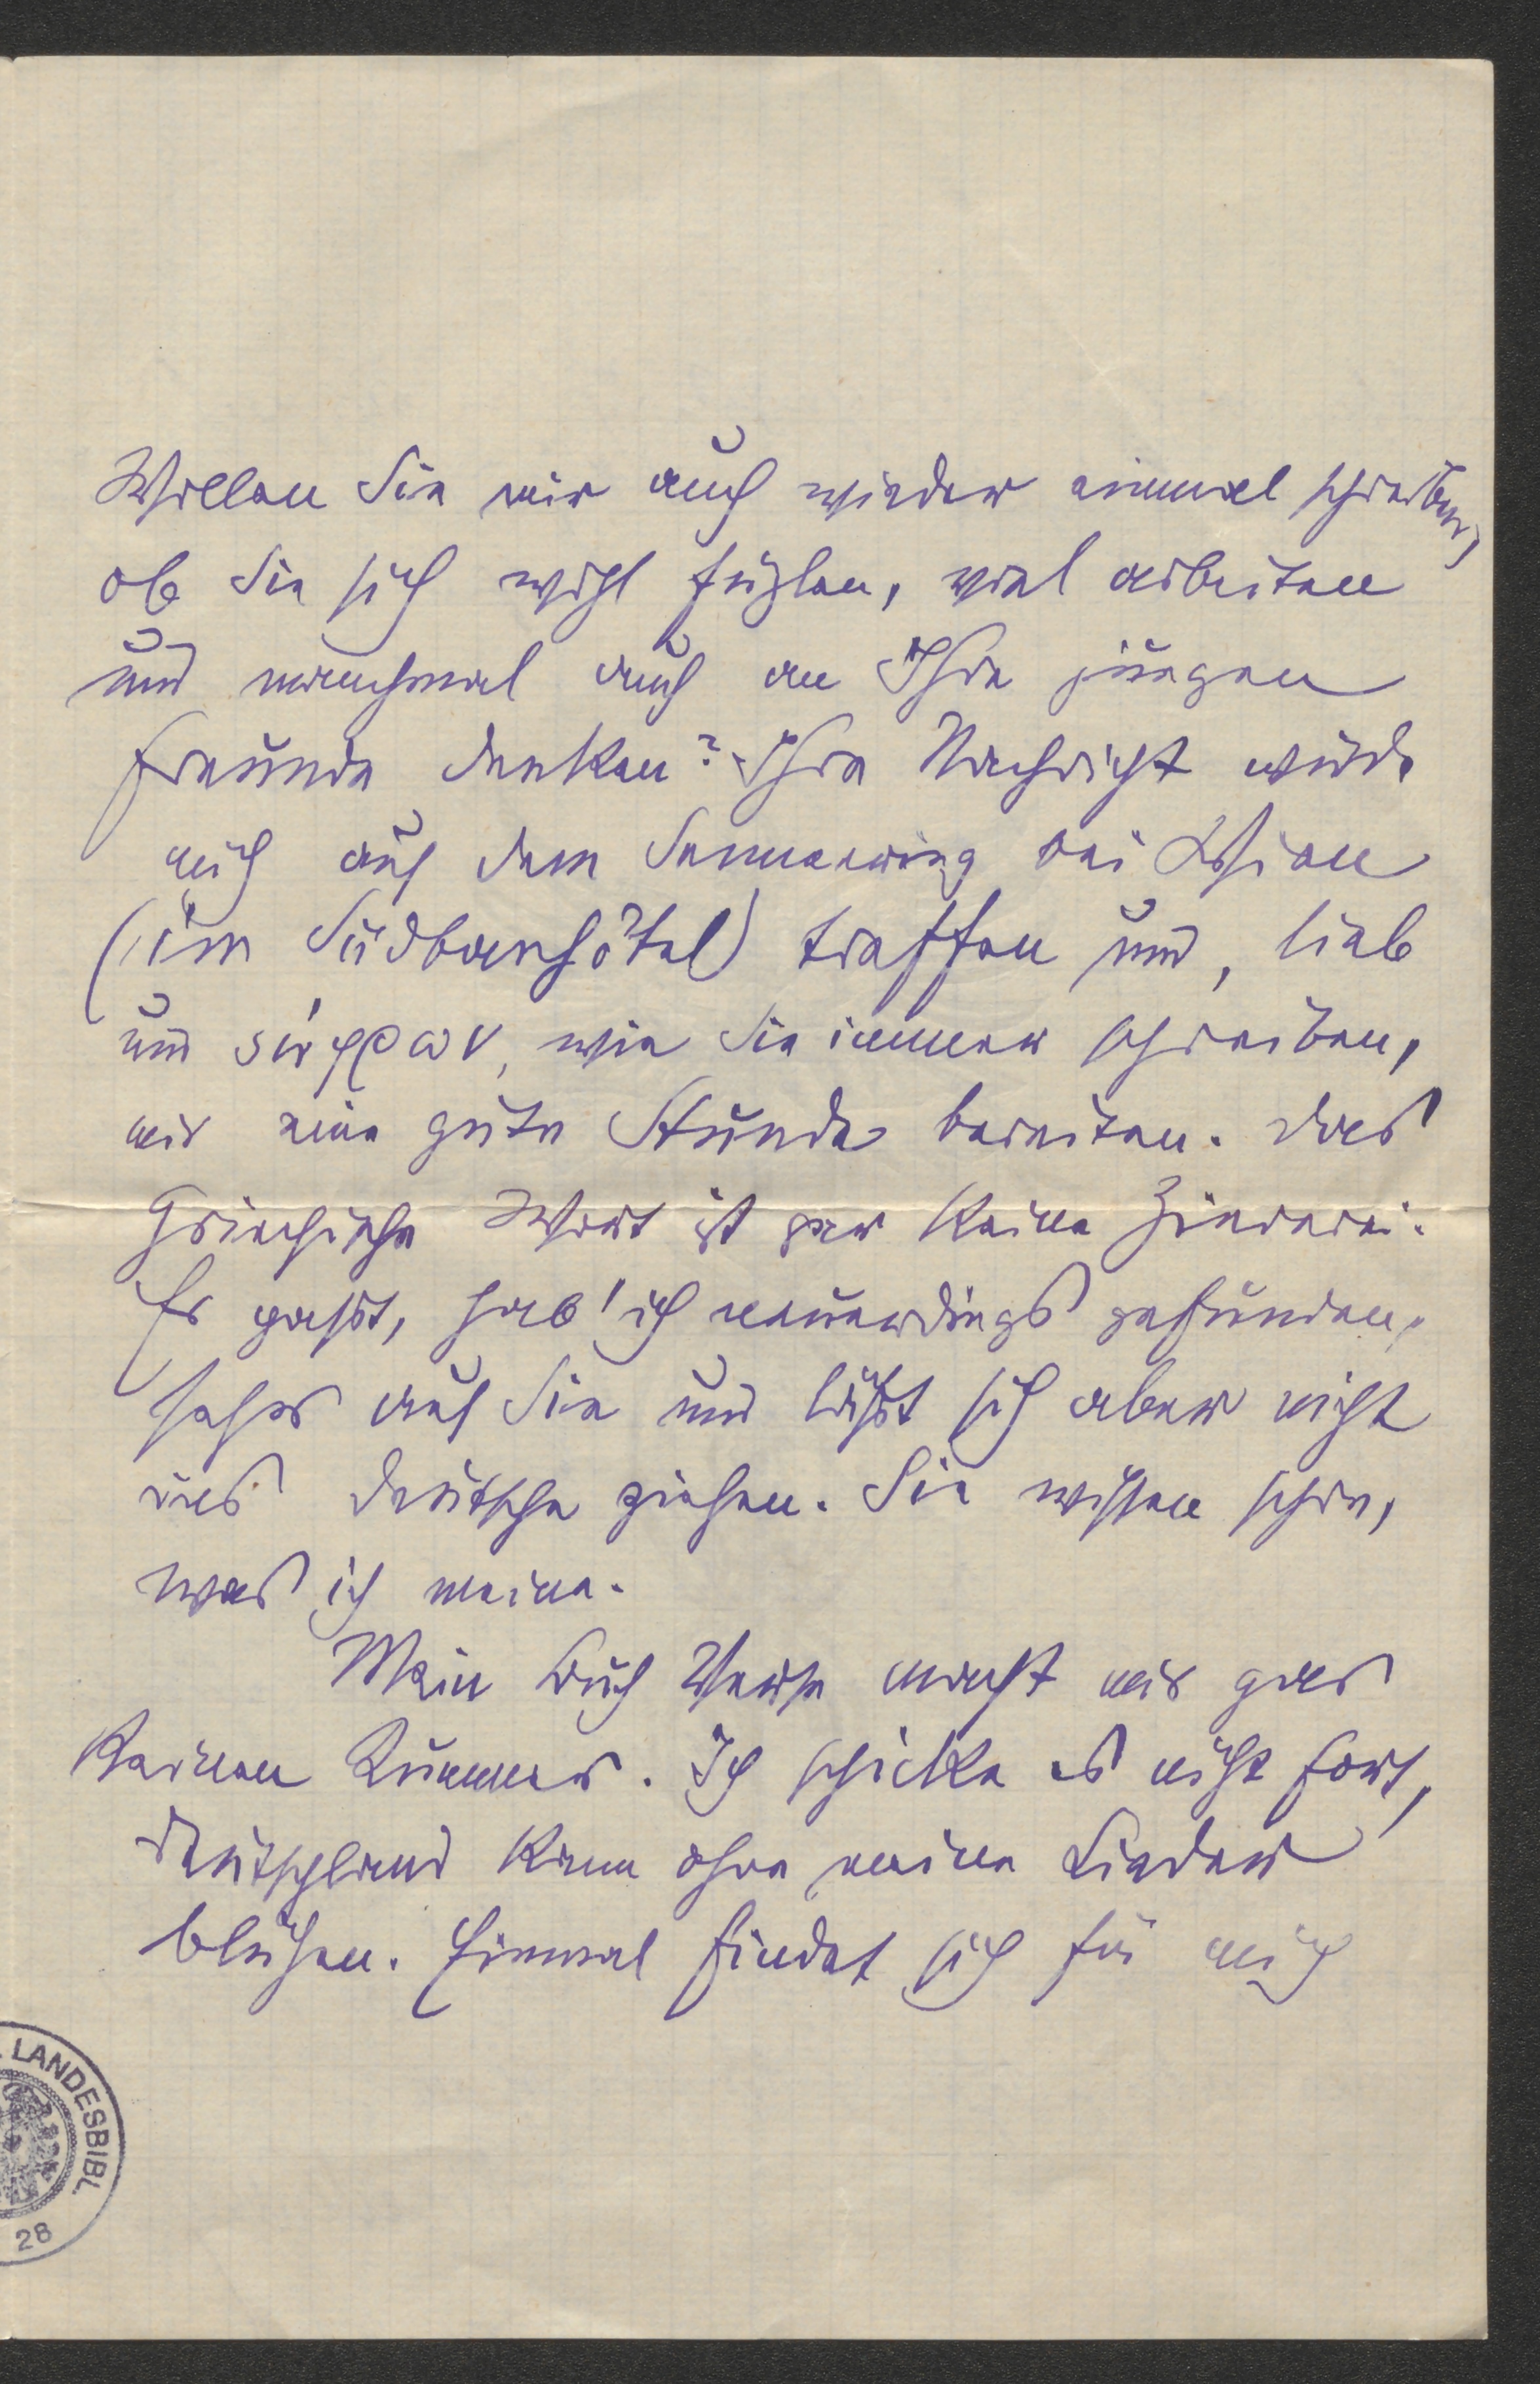 Wollen Sie mir auch wieder einmal schreiben,
ob Sie sich wohl fühlen, viel arbeiten
und manchmal auch an Ihre jungen
Freunde denken? Ihre Nachricht würde
mich auf dem Semmering bei Wien
(im Südbanhôtel) treffen und, lieb
und εὔφρων, wie Sie immer schreiben,
mir eine gute Stunde bereiten. Das
Griechische Wort ist gar keine Ziererei.
Es passt, hab' ich neuerdings gefunden,
sehr auf Sie und lässt sich aber nicht
ins deutsche ziehen. Sie wissen schon,
was ich meine.
Mein Buch Verse macht mir gar
keinen Kummer. Ich schicke es nicht fort,
Deutschland kann ohne meine Lieder
blühen. Einmal findet sich für mich
LANDESBIBL
28